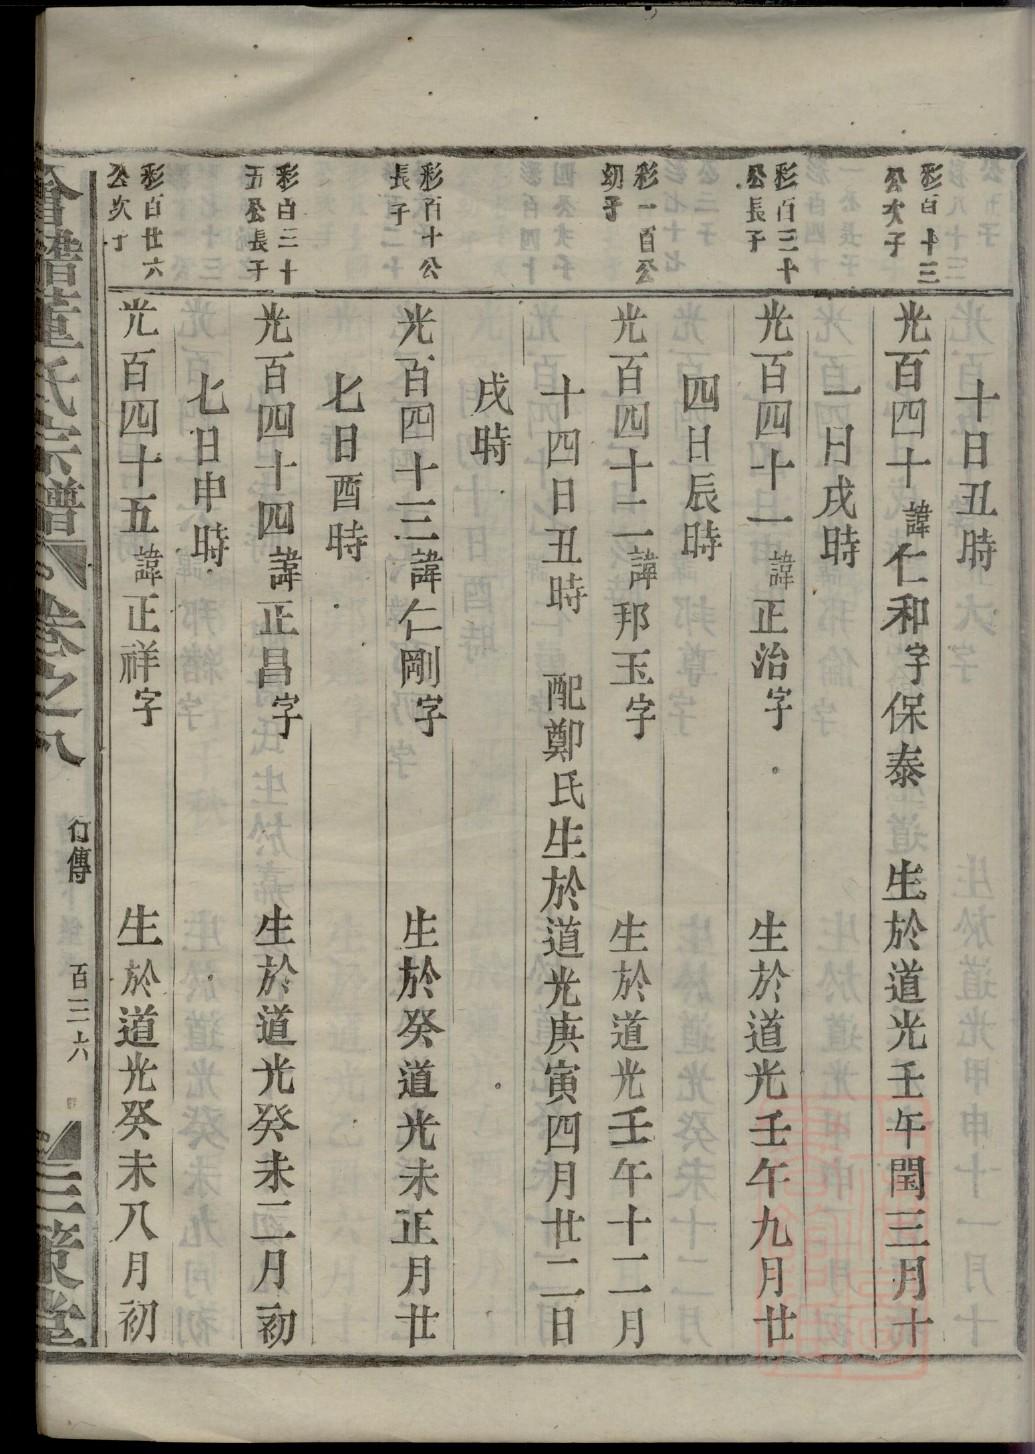 十日丑時
彩百十三
公次子
光百四十諱仁和字保泰　生於道光壬午閏三月十
一日戌時
彩百三十
公長子
光百四十一諱正治字　生於道光壬午九月廿
四日辰時
彩一百公
幼子
光百四十二諱邦玉字　生於道光壬午十二月
十四日丑時　配鄭氏生於道光庚寅四月廿二日
戌時
彩百十公
長子
光百四十三諱仁剛字　生於癸道光未正月廿
七日酉時
彩百三十
五公長子
光百四十四諱正昌字　生於道光癸未二月初
七日申時
彩百廿六
公次子
光百四十五諱正祥字　生於道光癸未八月初
董氏宗譜　卷之八　行傳　百三六　三策堂